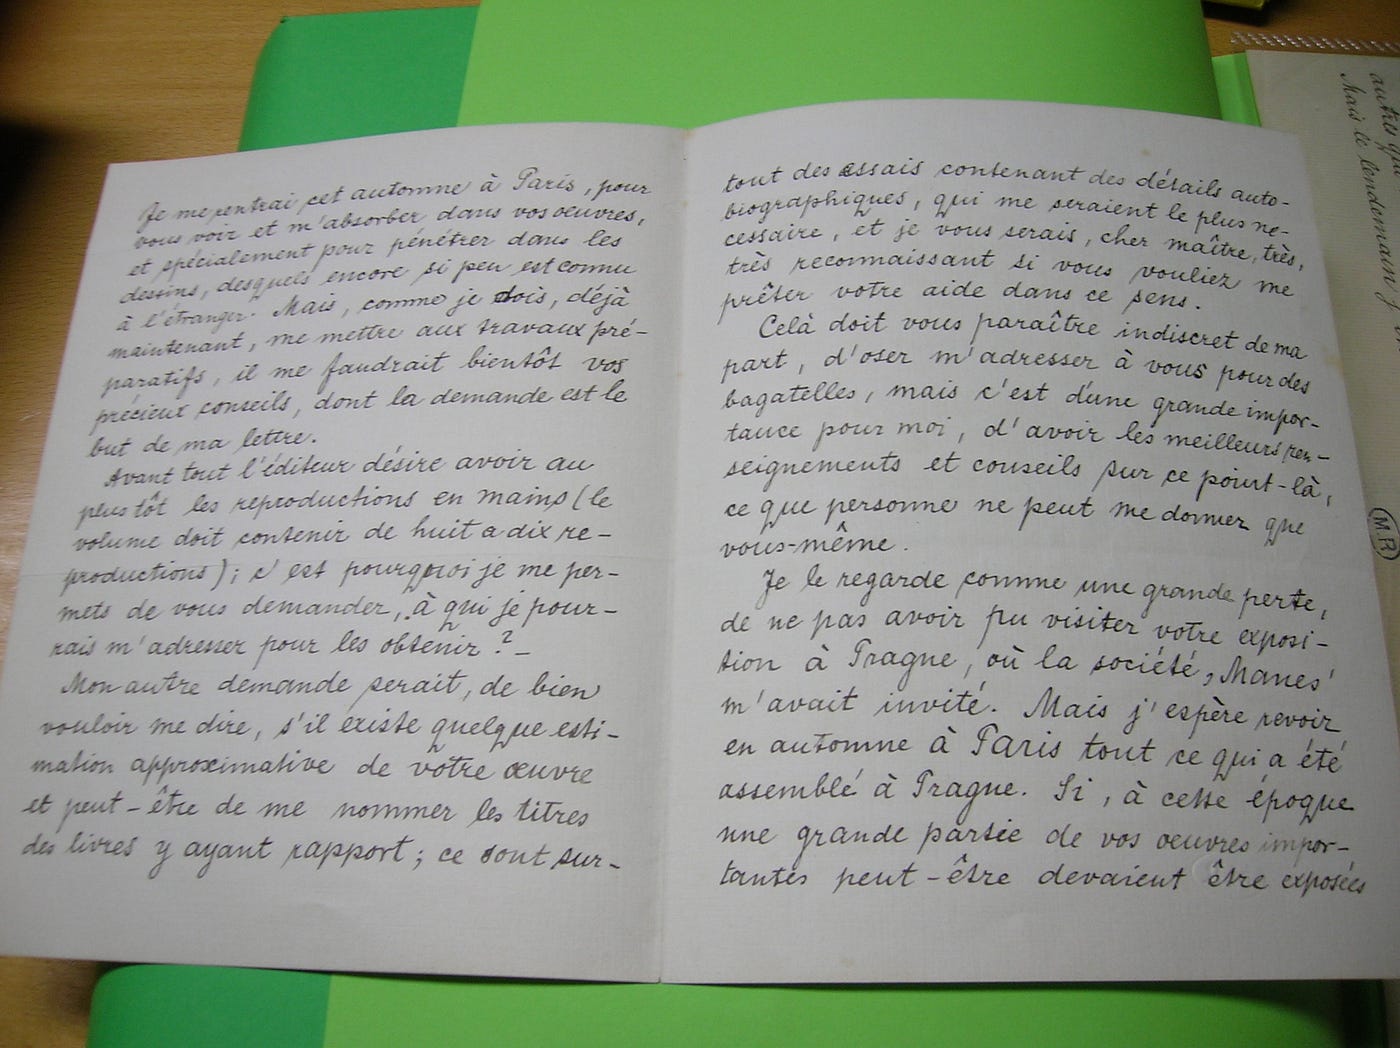 Je me rentrai cet automne à Paris, pour
vous voir et m'absorber dans vos oeuvres,
et spécialement pour pénétrer dans les
dessins, desquels encore si peu est connu
à l'étranger. Mais, comme je dois, déjà
maintenant, me mettre aux travaux pré-
paratifs, il me faudrait bientôt vos
précieux conseils, dont la demande est le
but de ma lettre.
Avant tout l'éditeur désire avoir au
plus tôt les reproductions en mains (le
volume doit contenir de huit a dix re-
productions); c'est pourquoi je me per-
mets de vous demander, à qui je pour-
rais m'adresser pour les obtenir? -
Mon autre demande serait, de bien
vouloir me dire, s'il existe quelque esti-
mation approximative de votre œuvre
et peut-être de me nommer les titres
des livres y ayant rapport; ce sont sur-
tout des essais contenant des détails auto-
biographiques, qui me seraient le plus né-
cessaire, et je vous serais, cher maître, très,
très reconnaissant si vous vouliez me
prêter votre aide dans ce sens.
Celà doit vous paraître indiscret de ma
part, d'oser m'adresser à vous pour des
bagatelles, mais c'est d'une grande impor-
tance pour moi, d'avoir les meilleurs ren-
seignements et conseils sur ce point-là,
ce que personne ne peut me donner que
vous-même.
Je le regarde comme une grande perte,
de ne pas avoir pu visiter votre exposi-
tion à Prague, où la société, Manes'
m'avait invité. Mais j'espère revoir
en automne à Paris tout ce qui a été
assemblé à Prague. Si, à cette époque
une grande partie de vos oeuvres impor-
tantes peut-être devaient être exposées
autres
Mais le lendemain j'
MR